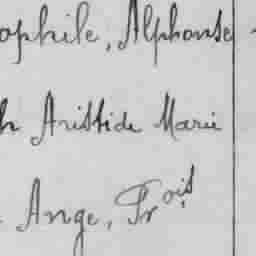 ophile, Alphonse
h Aristide Marie
Ange, Frois